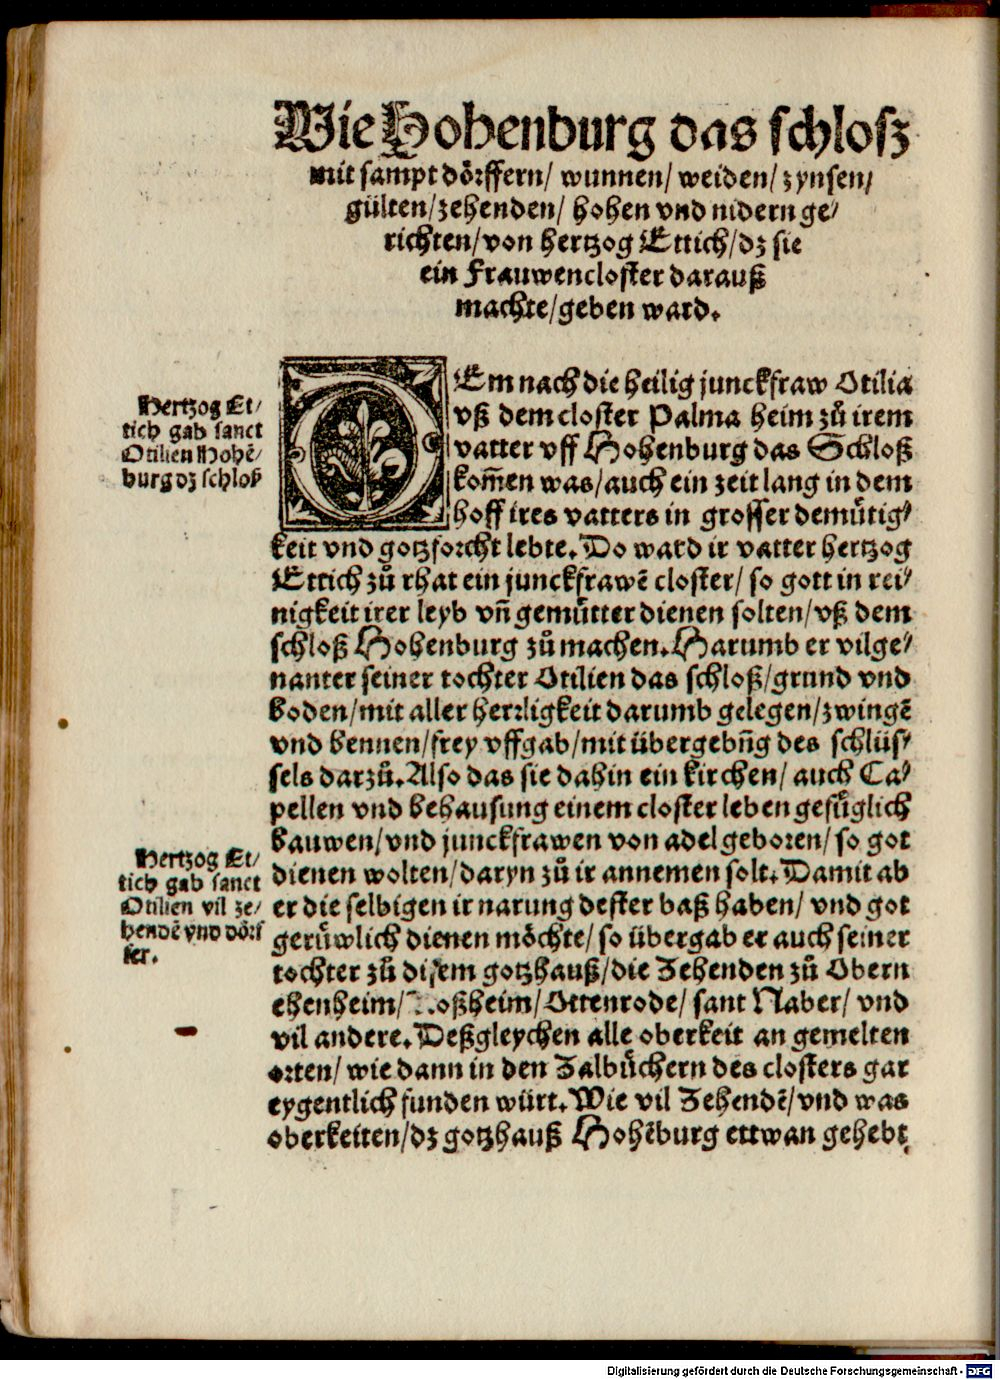 Wie Hohenburg das schlosz
mit sampt dörffern/ wunnen/ weiden/ zynsen/
gülten/zehenden/ hohen vnd nidern ge/
richten/von hertzog Ettich/dz sie
ein Frauwencloster darauß
machte/geben ward.
Hertzog Et/
tich gab sanct
Otilien Hohē/
burg dz schloß
DEm nach die heilig junckfraw Otilia
vß dem closter Palma heim zů irem
vatter vff Hohenburg das Schloß
kom̄en was/auch ein zeit lang in dem
hoff ires vatters in grosser demůtig/
keit vnd gotzforcht lebte. Do ward ir vatter hertzog
Ettich zů rhat ein junckfrawē closter/ so gott in rei/
nigkeit irer leyb vn̄ gemůtter dienen solten/vß dem
schloß Hohenburg zů machen. Harumb er vilge/
nanter seiner tochter Otilien das schloß/grund vnd
boden/mit aller herrligkeit darumb gelegen/zwingē
vnd bennen/frey vffgab/mit übergebn̄g des schlüs/
sels darzů. Also das sie dahin ein kirchen/ auch Ca/
pellen vnd behausung einem closter leben gefůglich
bauwen/vnd junckfrawen von adel geboren/ so got
dienen wolten/daryn zů ir annemen solt. Damit ab
er die selbigen ir narung dester baß haben/ vnd got
gerůwlich dienen möchte/ so übergab er auch seiner
tochter zů disem gotzhauß/die Zehenden zů Obern
ehenheim/ Roßheim/Ottenrode/ sant Naber/ vnd
vil andere. Deßgleychen alle oberkeit an gemelten
orten/ wie dann in den Zalbůchern des closters gar
eygentlich funden würt. Wie vil Zehendē/vnd was
oberkeiten/dz gotzhauß Hohēburg ettwan gehebt
Hertzog Et/
tich gab sanct
Otilien vil ze/
hendē vnd dörf
fer.
Digitalisierung gefördert durch die Deutsche Forschungsgemeinschaft - DFG